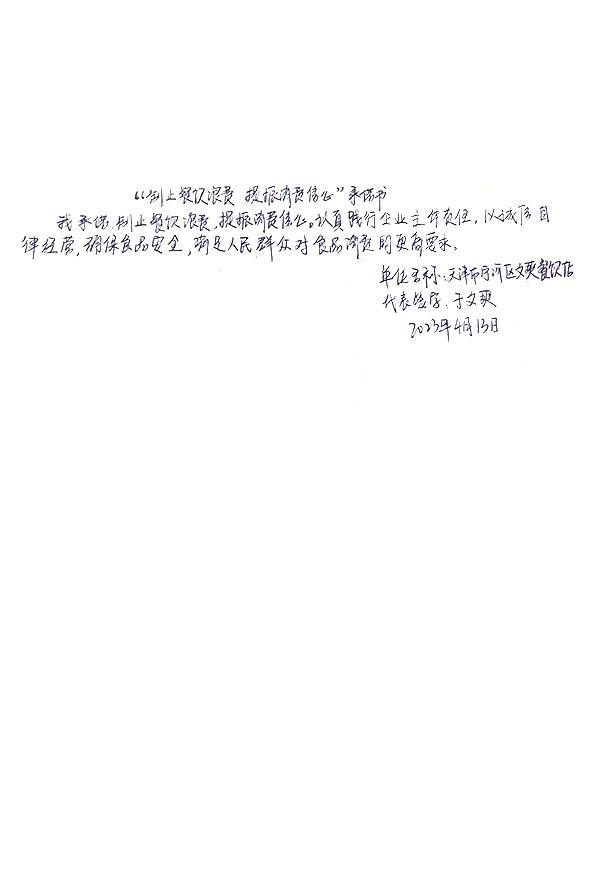 “制止餐饮浪费 提振消费信心”承诺书
我承诺,制止餐饮浪费,提振消费信心。认真践行企业主体责任,以诚信自
律经营,确保食品安全,满足人民群众对食品消费的更高要求。
单位名称:天津市宁河区文爽餐饮店
代表签字:于文爽
2023年4月13日